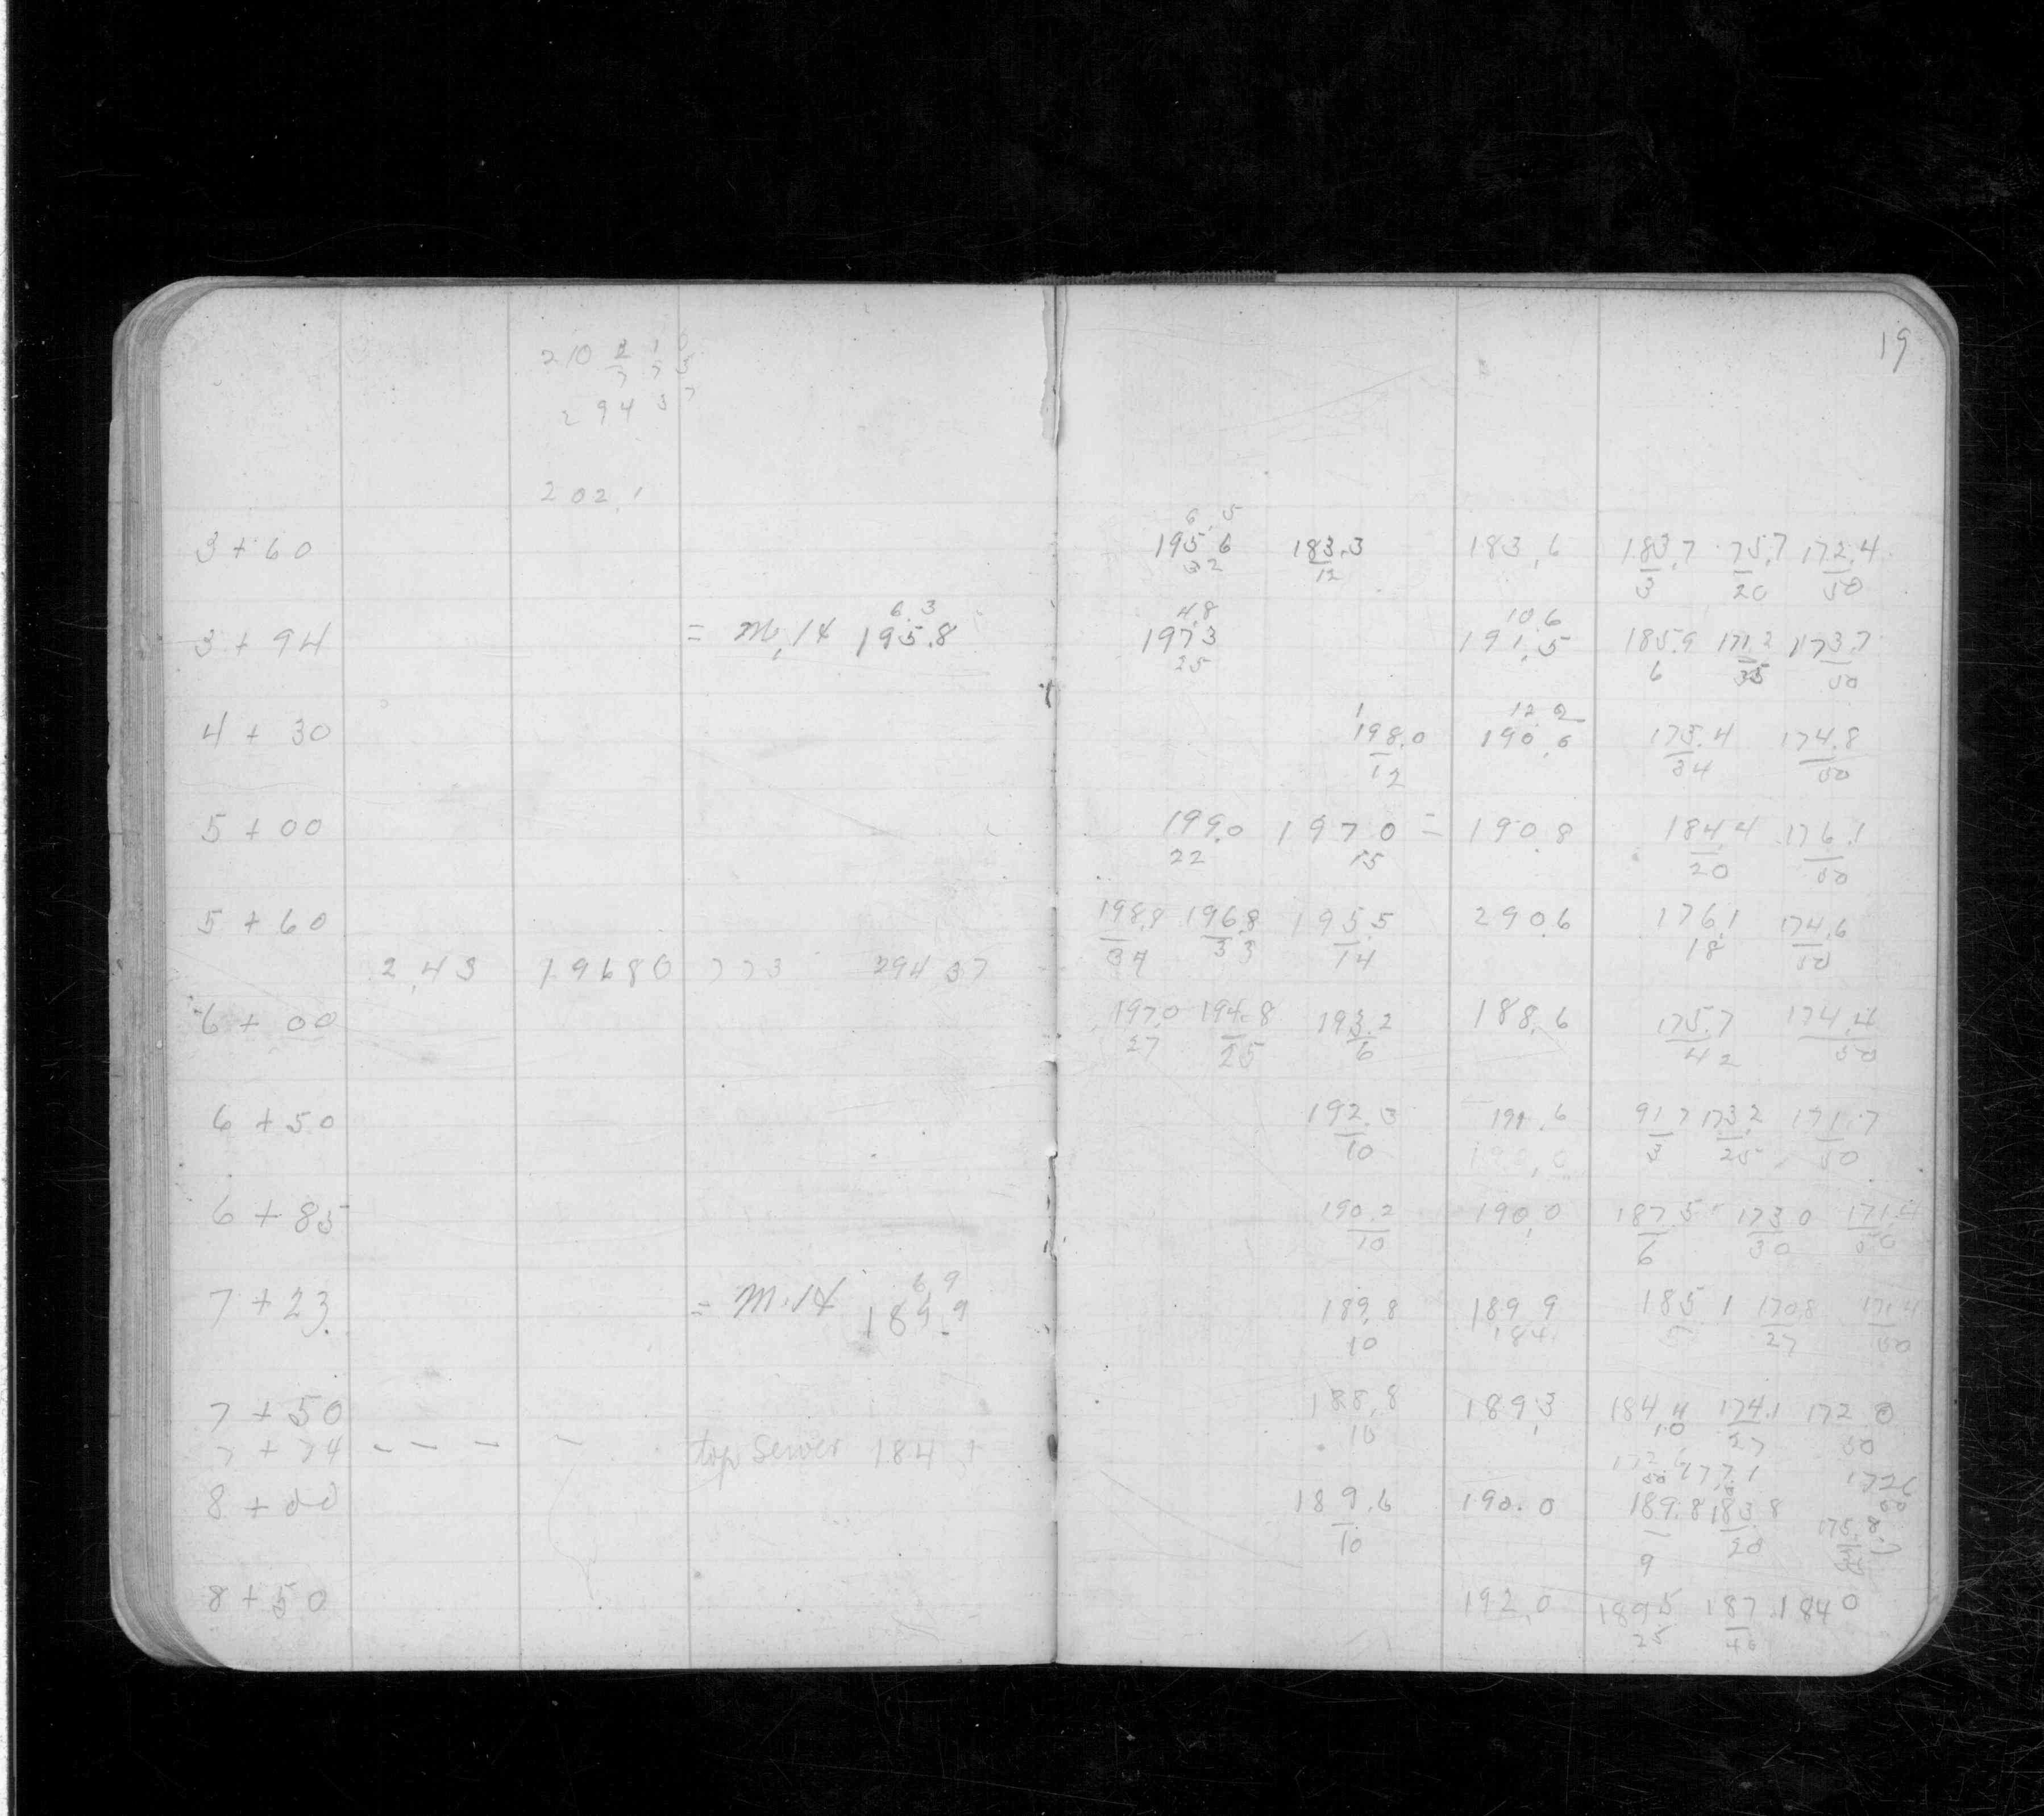 19
210 2 1 0
7 7 3
2 94 3 7
202.1
6.5
3+60 195.6 183.3 183.6 183.7 75.7 172.4
32 12 3 20 50
6.3 4.8 10.6
3+94 = M.14 195.8 197.3 191.5 185.9 171.2 173.7
25 6 35 50
12.2
4+30 198.0 190.6 175.4 174.8
12 34 50
5+00 199.0 197.0 = 190.8 184.4 176.1
22 15 20 50
5+60 198.8 196.8 195.5 290.6 176.1 174.6
34 33 14 18 50
2.43 19680 773 294 37
6+00 197.0 194.8 193.2 188.6 175.7 174.4
27 25 6 42 50
6+50 192.3 191.6 91 7 173.2 171.7
10 190.0 3 25 50
6+85 190.2 190.0 187.5 173 0 171.4
10 6 30 50
6 9
7+23 = M.14 189.9 189.8 189 9 185 1 170.8 171.4
10 184 27 50
7+50 188.8 189.3 184.4 174.1 172 0
10 10 27 50
7+74 - - - - top Sewer 184 1
172.6 177.1 172.6
50 50
8+00 189.6 190.0 189.8 183.8 175.8
10 9 20
8+50 192.0 189.5 187.1 84 0
25 46